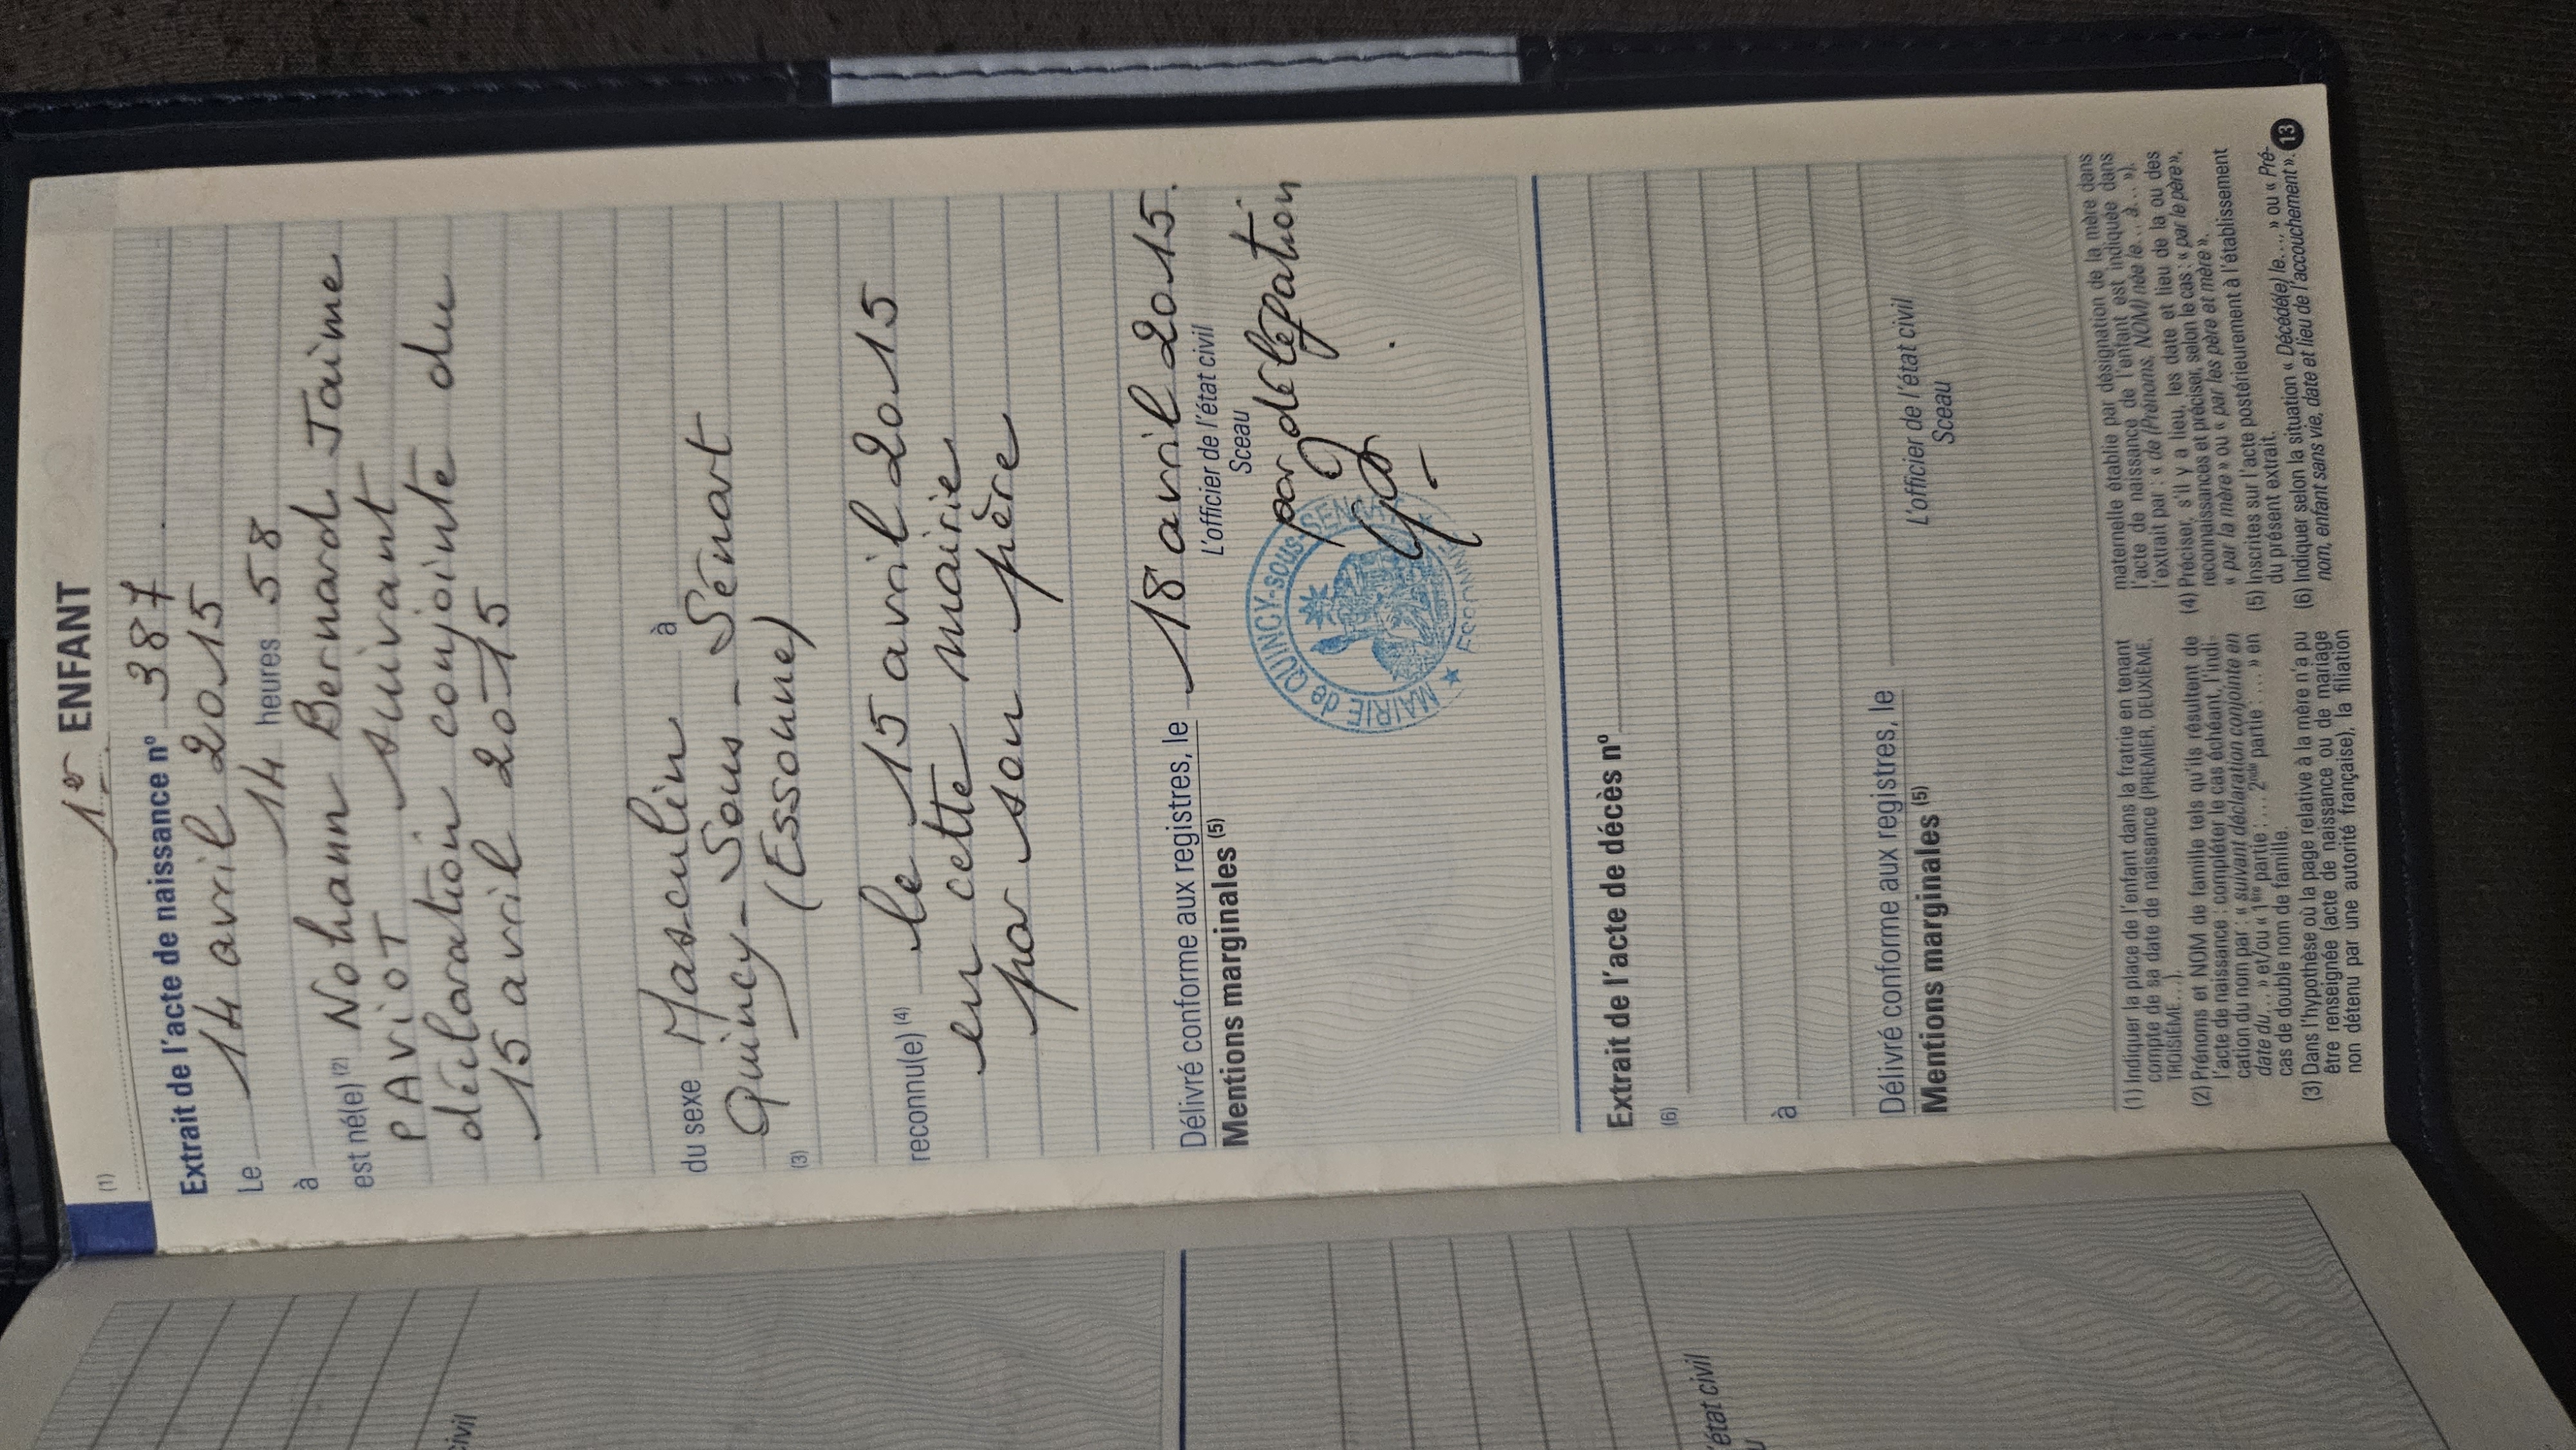 (1) 1er ENFANT
Extrait de l'acte de naissance nº 387
Le 14 avril 2015
à 14 heures 58
est né(e) (2) Nohann Bernard Jaime
PAVIOT suivant
déclaration conjointe du
15 avril 2015
du sexe Masculin à
Quincy-Sous-Sénart
(3) (Essonne)
reconnu(e) (4) le 15 avril 2015
en cette mairie
par son père
Délivré conforme aux registres, le 18 avril 2015.
Mentions marginales (5)
L'officier de l'état civil
Sceau
par délégation
MAIRIE de QUINCY-sous-SENART
ESSONNE
Extrait de l'acte de décès nº
(6)
à
Délivré conforme aux registres, le
Mentions marginales (5)
L'officier de l'état civil
Sceau
(1) Indiquer la place de l'enfant dans la fratrie en tenant
compte de sa date de naissance (PREMIER, DEUXIÈME,
TROISIÈME...).
(2) Prénoms et NOM de famille tels qu'ils résultent de
l'acte de naissance : compléter le cas échéant, l'indi-
cation du nom par : « suivant déclaration conjointe en
date du... » et/ou « 1ère partie : .... 2nde partie : .... » en
cas de double nom de famille.
(3) Dans l'hypothèse où la page relative à la mère n'a pu
être renseignée (acte de naissance ou de mariage
non détenu par une autorité française), la filiation
maternelle établie par désignation de la mère dans
l'acte de naissance de l'enfant est indiquée dans
l'extrait par : « de (Prénoms, NOM) née le... à... »).
(4) Préciser, s'il y a lieu, les date et lieu de la ou des
reconnaissances et préciser, selon le cas : « par le père »,
« par la mère » ou « par les père et mère ».
(5) Inscrites sur l'acte postérieurement à l'établissement
du présent extrait.
(6) Indiquer selon la situation « Décédé(e) le... » ou « Pré-
nom, enfant sans vie, date et lieu de l'accouchement ».
13
civil
'état civil